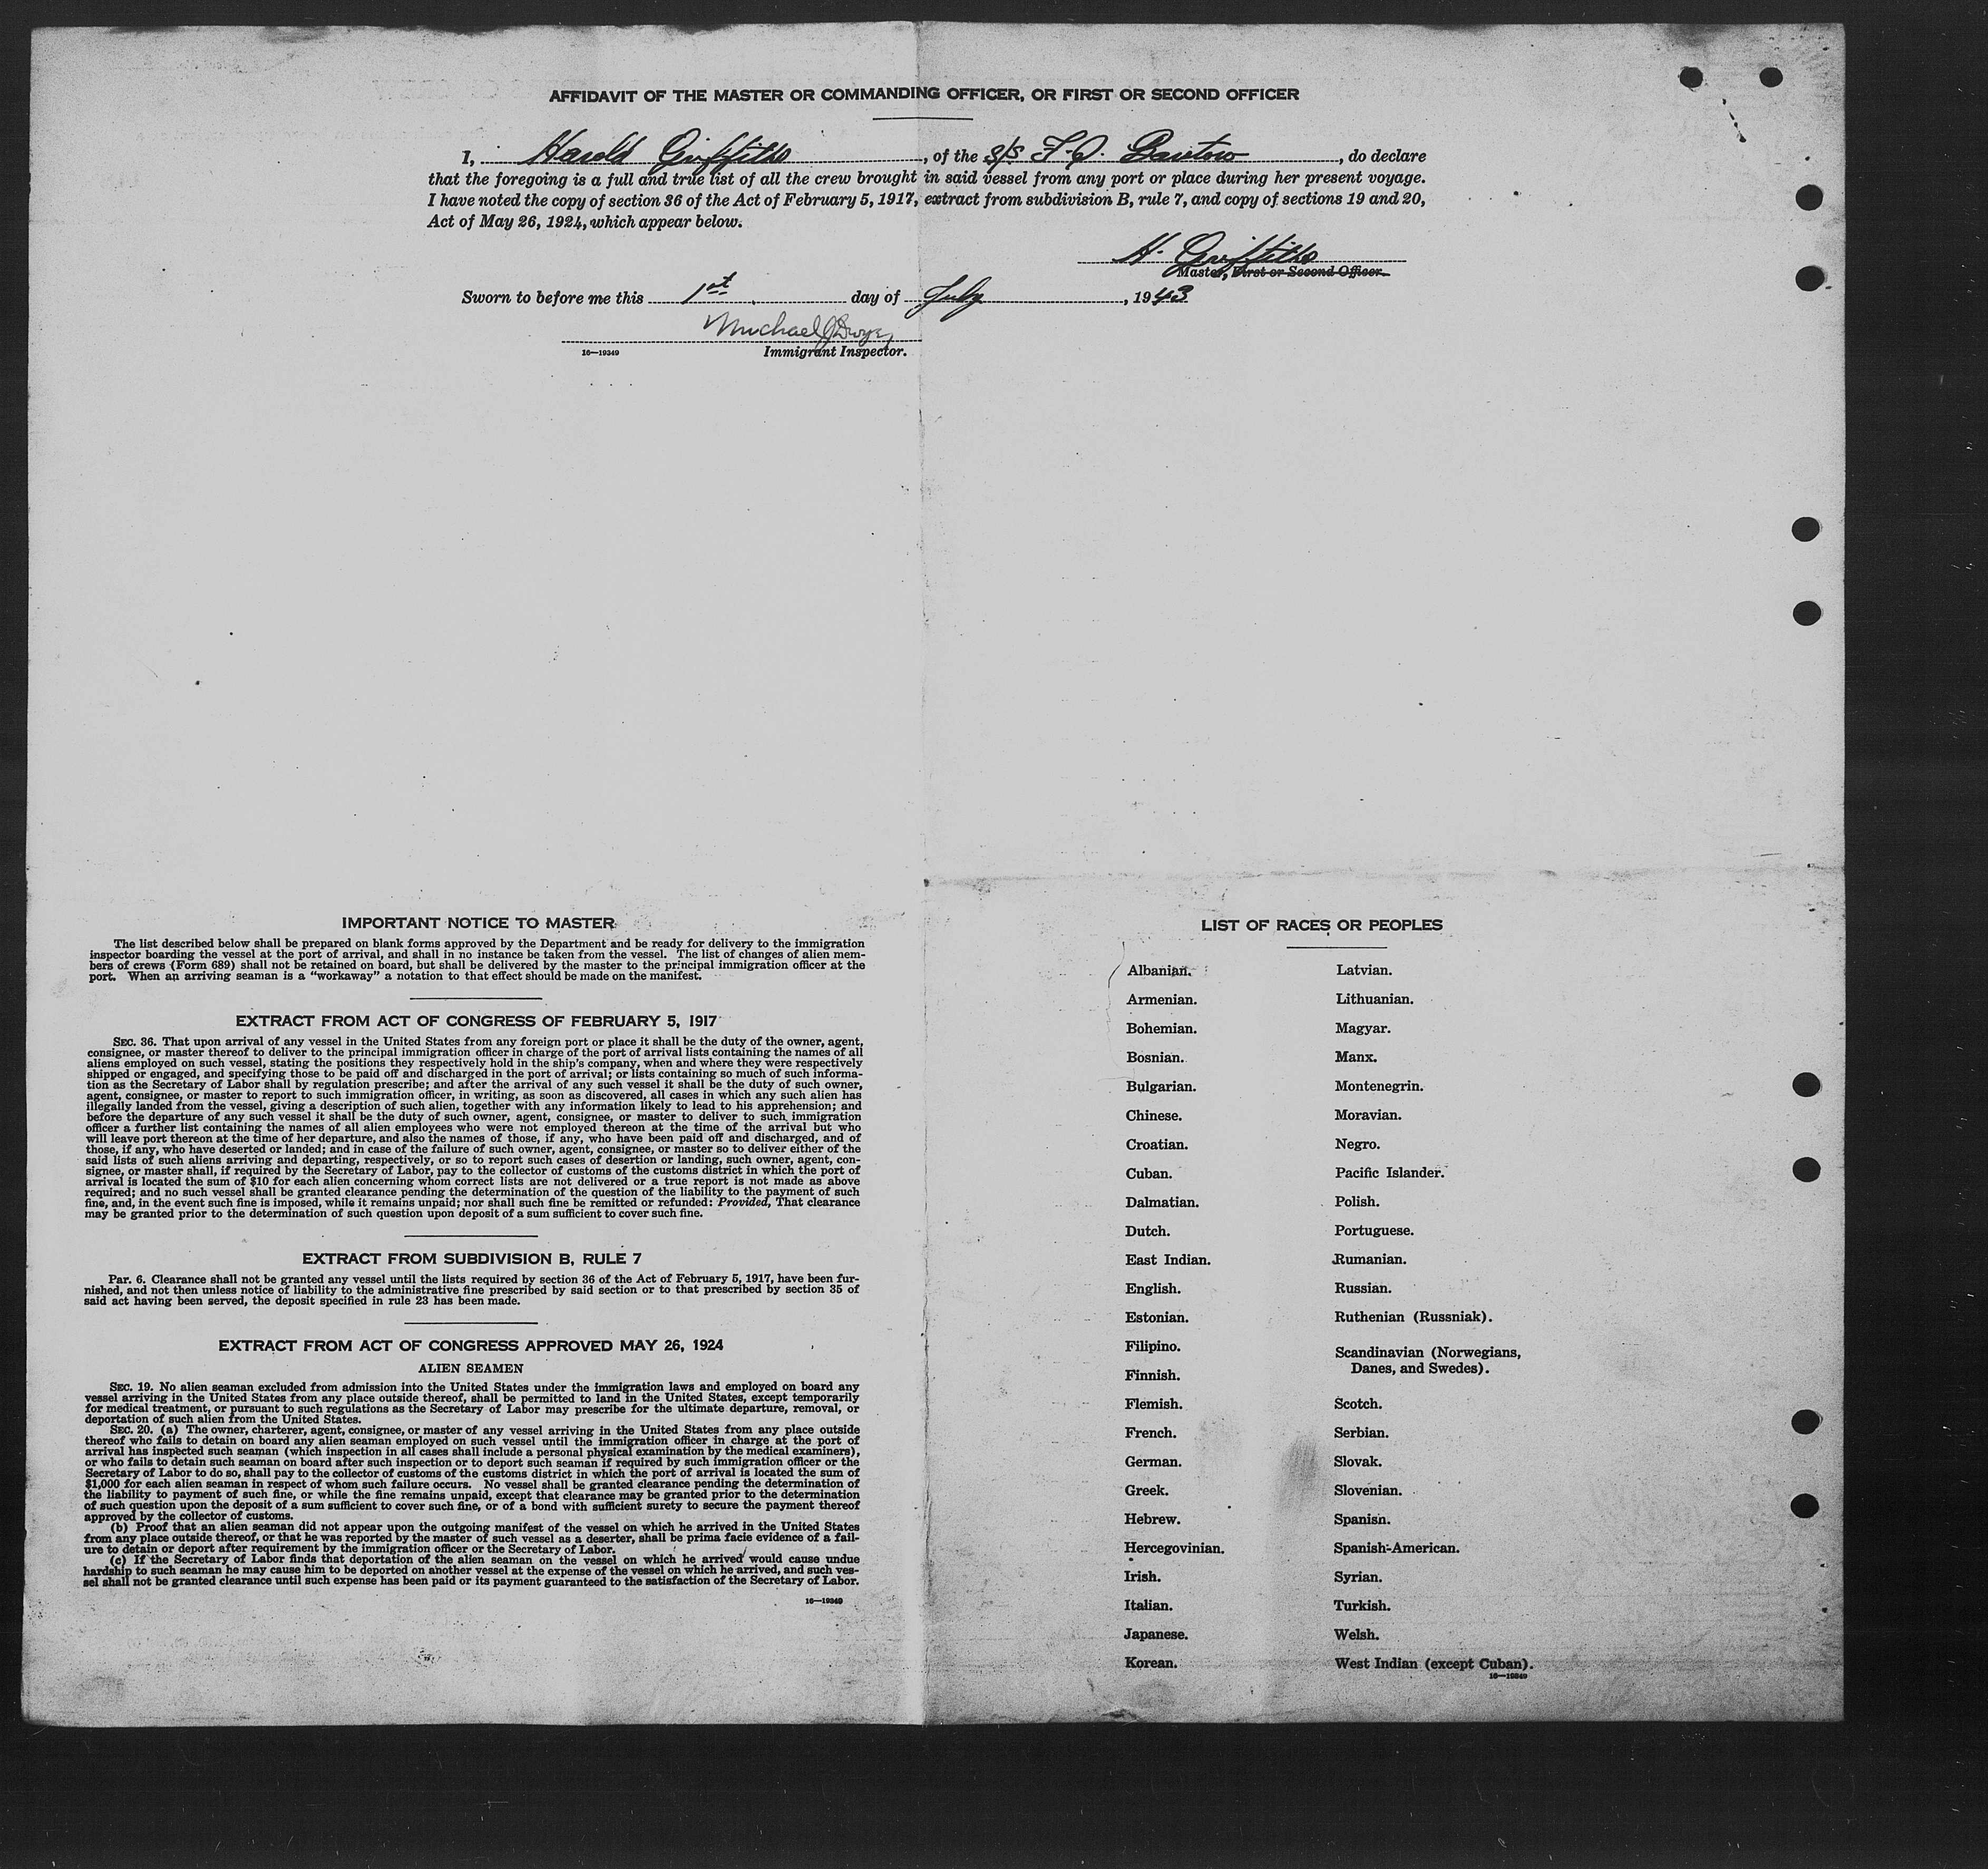 AFFIDAVIT OF THE MASTER OR COMMANDING OFFICER, OR FIRST OR SECOND OFFICER
I, Harold Griffiths, of the S/S F.Q. Barstow, do declare
that the foregoing is a full and true list of all the crew brought in said vessel from any port or place during her present voyage.
I have noted the copy of section 36 of the Act of February 5, 1917, extract from subdivision B, rule 7, and copy of sections 19 and 20,
Act of May 26, 1924, which appear below.
H. Griffiths
Master, First or Second Officer.
Sworn to before me this 1st day of July, 1943
Michael J Dwyer
16—19349 Immigrant Inspector.
IMPORTANT NOTICE TO MASTER
The list described below shall be prepared on blank forms approved by the Department and be ready for delivery to the immigration
inspector boarding the vessel at the port of arrival, and shall in no instance be taken from the vessel. The list of changes of alien mem-
bers of crews (Form 689) shall not be retained on board, but shall be delivered by the master to the principal immigration officer at the
port. When an arriving seaman is a "workaway" a notation to that effect should be made on the manifest.
EXTRACT FROM ACT OF CONGRESS OF FEBRUARY 5, 1917
SEC. 36. That upon arrival of any vessel in the United States from any foreign port or place it shall be the duty of the owner, agent,
consignee, or master thereof to deliver to the principal immigration officer in charge of the port of arrival lists containing the names of all
aliens employed on such vessel, stating the positions they respectively hold in the ship's company, when and where they were respectively
shipped or engaged, and specifying those to be paid off and discharged in the port of arrival; or lists containing so much of such informa-
tion as the Secretary of Labor shall by regulation prescribe; and after the arrival of any such vessel it shall be the duty of such owner,
agent, consignee, or master to report to such immigration officer, in writing, as soon as discovered, all cases in which any such alien has
illegally landed from the vessel, giving a description of such alien, together with any information likely to lead to his apprehension; and
before the departure of any such vessel it shall be the duty of such owner, agent, consignee, or master to deliver to such immigration
officer a further list containing the names of all alien employees who were not employed thereon at the time of the arrival but who
will leave port thereon at the time of her departure, and also the names of those, if any, who have been paid off and discharged, and of
those, if any, who have deserted or landed; and in case of the failure of such owner, agent, consignee, or master so to deliver either of the
said lists of such aliens arriving and departing, respectively, or so to report such cases of desertion or landing, such owner, agent, con-
signee, or master shall, if required by the Secretary of Labor, pay to the collector of customs of the customs district in which the port of
arrival is located the sum of $10 for each alien concerning whom correct lists are not delivered or a true report is not made as above
required; and no such vessel shall be granted clearance pending the determination of the question of the liability to the payment of such
fine, and, in the event such fine is imposed, while it remains unpaid; nor shall such fine be remitted or refunded: Provided, That clearance
may be granted prior to the determination of such question upon deposit of a sum sufficient to cover such fine.
EXTRACT FROM SUBDIVISION B, RULE 7
PAR. 6. Clearance shall not be granted any vessel until the lists required by section 36 of the Act of February 5, 1917, have been fur-
nished, and not then unless notice of liability to the administrative fine prescribed by said section or to that prescribed by section 35 of
said act having been served, the deposit specified in rule 23 has been made.
EXTRACT FROM ACT OF CONGRESS APPROVED MAY 26, 1924
ALIEN SEAMEN
SEC. 19. No alien seaman excluded from admission into the United States under the immigration laws and employed on board any
vessel arriving in the United States from any place outside thereof, shall be permitted to land in the United States, except temporarily
for medical treatment, or pursuant to such regulations as the Secretary of Labor may prescribe for the ultimate departure, removal, or
deportation of such alien from the United States.
SEC. 20. (a) The owner, charterer, agent, consignee, or master of any vessel arriving in the United States from any place outside
thereof who fails to detain on board any alien seaman employed on such vessel until the immigration officer in charge at the port of
arrival has inspected such seaman (which inspection in all cases shall include a personal physical examination by the medical examiners),
or who fails to detain such seaman on board after such inspection or to deport such seaman if required by such immigration officer or the
Secretary of Labor to do so, shall pay to the collector of customs of the customs district in which the port of arrival is located the sum of
$1,000 for each alien seaman in respect of whom such failure occurs. No vessel shall be granted clearance pending the determination of
the liability to payment of such fine, or while the fine remains unpaid, except that clearance may be granted prior to the determination
of such question upon the deposit of a sum sufficient to cover such fine, or of a bond with sufficient surety to secure the payment thereof
approved by the collector of customs.
(b) Proof that an alien seaman did not appear upon the outgoing manifest of the vessel on which he arrived in the United States
from any place outside thereof, or that he was reported by the master of such vessel as a deserter, shall be prima facie evidence of a fail-
ure to detain or deport after requirement by the immigration officer or the Secretary of Labor.
(c) If the Secretary of Labor finds that deportation of the alien seaman on the vessel on which he arrived would cause undue
hardship to such seaman he may cause him to be deported on another vessel at the expense of the vessel on which he arrived, and such ves-
sel shall not be granted clearance until such expense has been paid or its payment guaranteed to the satisfaction of the Secretary of Labor.
16—19349
LIST OF RACES OR PEOPLES
Albanian.
Armenian.
Bohemian.
Bosnian.
Bulgarian.
Chinese.
Croatian.
Cuban.
Dalmatian.
Dutch.
East Indian.
English.
Estonian.
Filipino.
Finnish.
Flemish.
French.
German.
Greek.
Hebrew.
Hercegovinian.
Irish.
Italian.
Japanese.
Korean.
Latvian.
Lithuanian.
Magyar.
Manx.
Montenegrin.
Moravian.
Negro.
Pacific Islander.
Polish.
Portuguese.
Rumanian.
Russian.
Ruthenian (Russniak).
Scandinavian (Norwegians,
Danes, and Swedes).
Scotch.
Serbian.
Slovak.
Slovenian.
Spanish.
Spanish-American.
Syrian.
Turkish.
Welsh.
West Indian (except Cuban).
16—19349